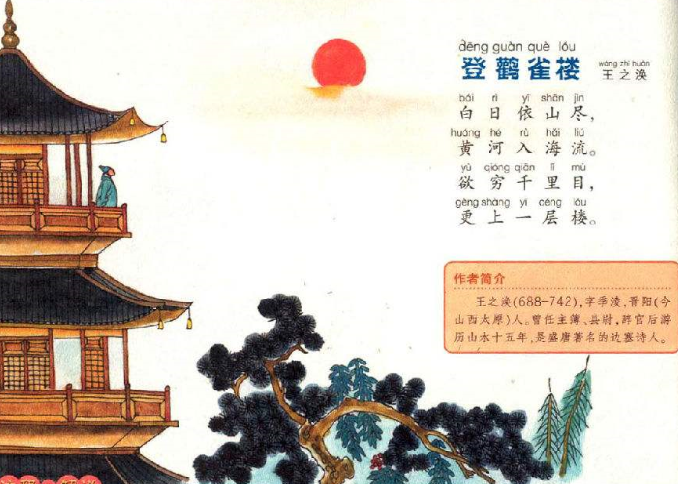 dēng guàn què lóu
登鹳雀楼
wáng zhī huàn
王之涣
bái rì yī shān jìn
白日依山尽，
huáng hé rù hǎi liú
黄河入海流。
yù qióng qiān lǐ mù
欲穷千里目，
gèng shàng yì céng lóu
更上一层楼。
作者简介
王之涣(688-742),字季凌,晋阳(今
山西太原)人。曾任主簿、县尉,辞官后游
历山水十五年,是盛唐著名的边塞诗人。